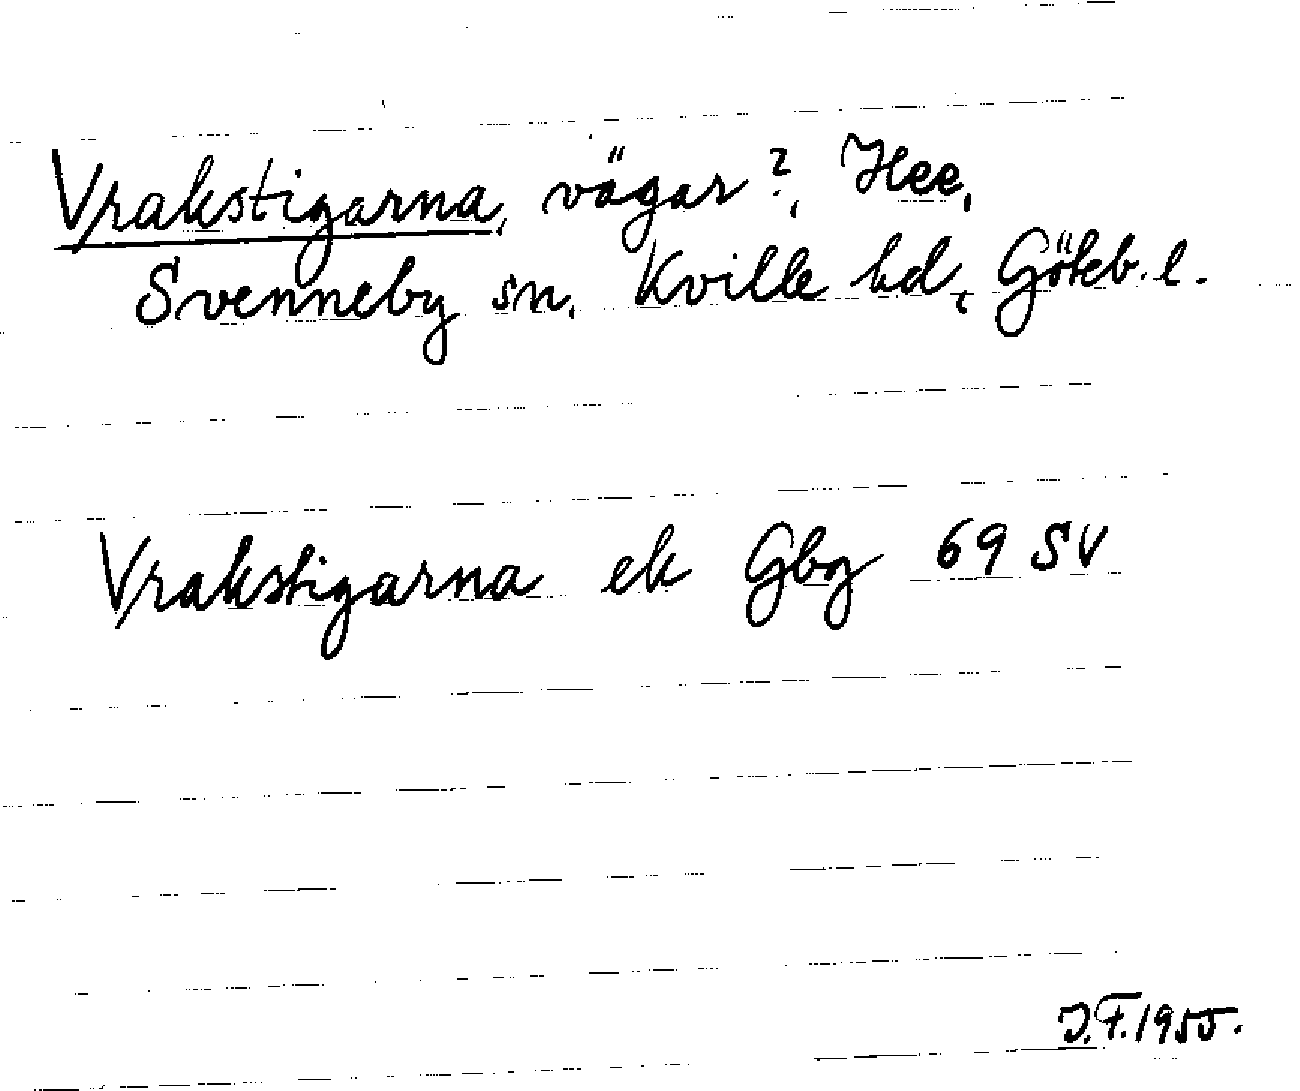 Vrakstigarna, vägar?, Hee,
Svenneby sn, Kville hd, Göteb. l.
Vrakstigarna ek Gbg 69 SV
J.F. 1955.